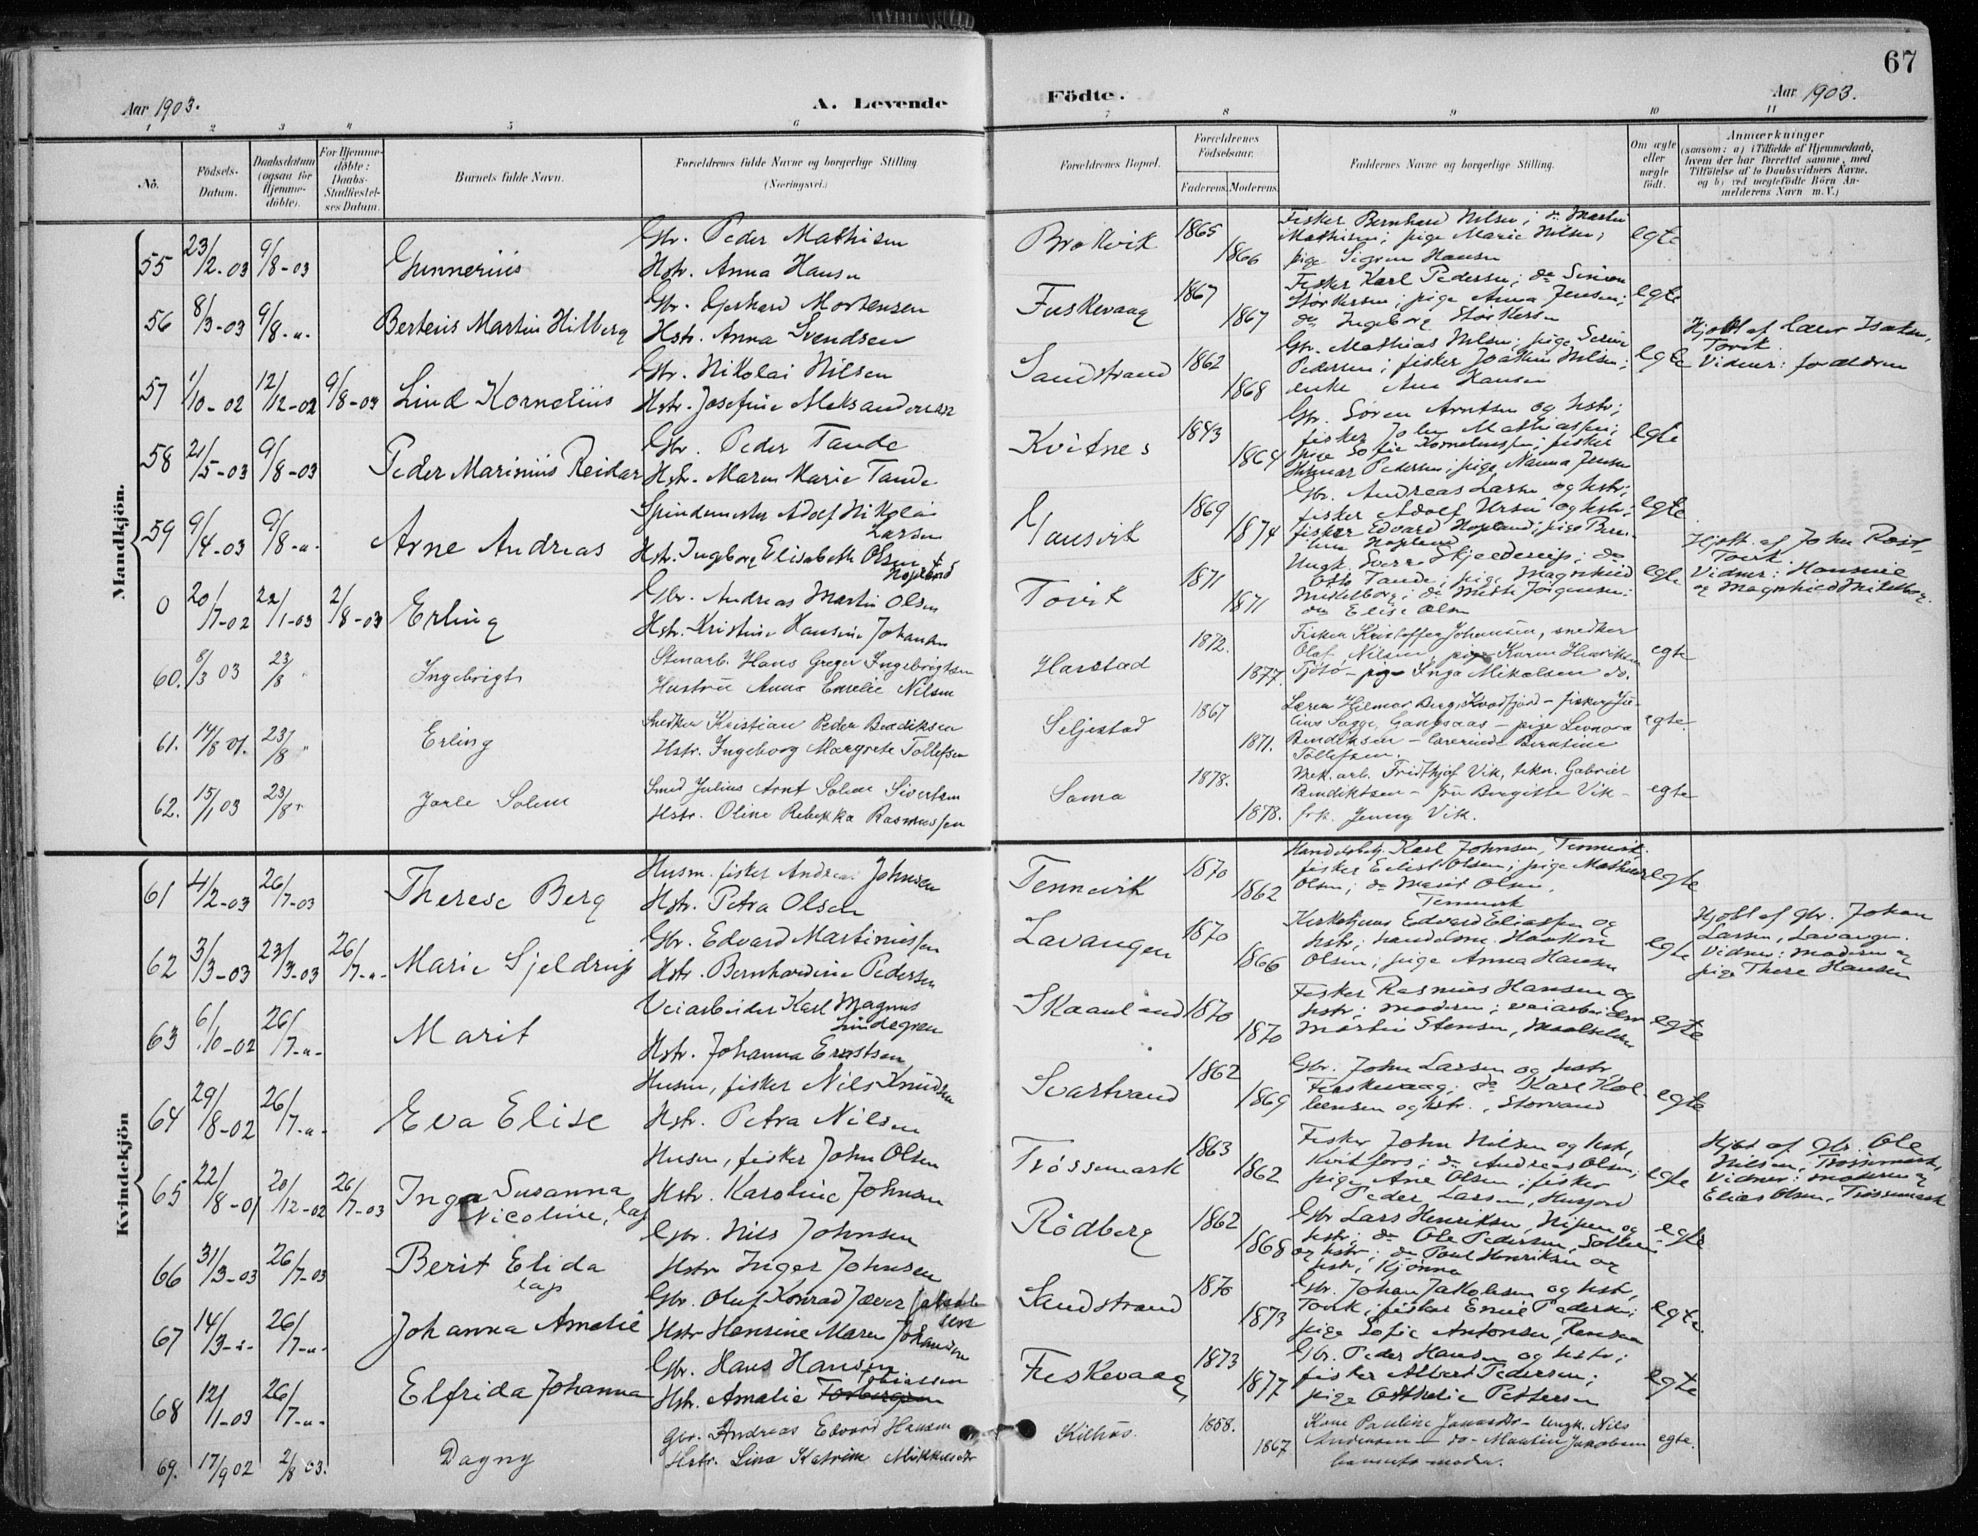 67
Aar 1903.
A. Levende
Födte.
Aar 1903.
1 2 3 4 5 6 7 8 9 10 11
No.
Födsels-Datum.
Daabsdatum (ogsaa for Hjemme-döbte).
For Hjemme-döbte: Daabs-Stadfæstel-ses Datum.
Barnets fulde Navn.
Forældrenes fulde Navne og borgerlige Stilling (Næringsvei.)
Forældrenes Bopæl.
Forældrenes Födselsaar.
Faderens. Moderens.
Faddernes Navne og borgerlige Stilling.
Om ægte eller uægte födt.
Anmærkninger
(saasom: a) i Tilfælde af Hjemmedaab, hvem der har forrettet samme, med Tilföielse af to Daabsvidners Navne, og b) ved uægtefödte Börn Anmelderens Navn m. V.)
Mandkjön.
55 23/2-03 9/8-03 Gunnerius
Gbr. Peder Mathisen
Hstr. Anna Hansen
Brokvik 1865 1866
Fisker Bernhard Nilsen; do Martin
Mathisen; pige Marie Nilsen;
pige Sigrun Hansen
egte
56 8/3-03 9/8-"- Berteus Martin Hilberg
Gbr. Gerhard Mortensen
Hstr. Anna Svendsen
Fuskevaag 1867 1867
Fisker Karl Pedersen; do Simon
Størkersen; pige Anna Jensen;
do Ingeborg Størkersen
egte
57 1/10-02 12/12-02 9/8-03 Lind Kornelius
Gbr. Nikolai Nilsen
Hstr. Josefine Aleksandersen
Sandstrand 1862 1868
Gbr. Mathias Nilsen; pige Serine
Pedersen; fisker Joakim Nilsen;
enke Ane Hansen
egte
Hjdbt af lærer Isaksen,
Tovik.
Vidner: forældren
58 21/5-03 9/8-03 Peder Marinius Reidar
Gbr. Peder Tande
Hstr. Maren Marie Tande
Kvitnes 1843 1864
Gbr. Søren Arntsen og hstr;
fisker John Mathiassen;
pige Sofie Korneliussen; fisker
Hilmar Pedersen; pige Nanna Jensen
egte
59 9/4-03 9/8-"- Arne Andreas
Spindemester Adolf Nikolai
Larsen
Hstr. Ingeborg Elisabeth Olsen
Hopland
1869 1874
Gbr. Andreas Larsen og hstr;
fisker Adolf Ursin og hstr;
fisker Edvard Hopland; pige
Hopland
egte
0 20/7-02 22/1-03 2/8-03 Erling
Gbr. Andreas Martin Olsen
Hstr. Kristine Hansine Johansen
Tovik 1871 1871
Ungk. Sverre Skjelderup; do
Otto Tande; pige Magnhild
Mittelborg; do Jørgensen;
do Elise Olsen
egte
Hjdbt. af John Røst,
Tovik.
Vidner: Hansine
og Magnhild Mittelborg.
60. 8/3 03 23/8 " Ingebrigt
Stenarb. Hans Greger Ingebrigtsen
Hustru Anna Emelie Nilsen
Harstad 1872. 1877.
Fisker Kristoffer Johansen, snedker
Olaf Nilsen, pige Karen Henriksen
Tjötö - pige Inga Mikalsen do.
egte
61. 14/8 01. 23/8 " Erling
Snedker Kristian Peder Bendiksen
Hstr. Ingeborg Margrete Tollefsen
Seljestad 1867 1871.
Lærer Hilmar Berg, Kvædfjord - fisker Ju-
lius Sagge, Gangsaas - pige Leonora
Bendiksen - lærerinde Berntine
Tollefsen.
egte.
62. 15/1 03 23/8 " Jarle Solem
Smed Julius Arnt Solem Sivertsen
Hstr. Oline Rebekka Rasmussen
Sama 1878. 1878.
Mek. arb. Fridthjof Vik, tekn. Gabriel
Bendiktsen - fru Birgitte Vik -
frk. Jenny Vik.
egte
Kvindekjön
61 4/2-03 26/7-03 Therese Berg
Husm. fisker Andreas Johnsen
Hstr. Petra Olsen
Tennevik 1870 1862
Handelsbetj. Karl Johnsen, Tennevik.
fisker Edist Olsen; pige Mathea
Olsen; do Marit Olsen,
Tennevik
egte
62 3/3-03 23/3-03 26/7-"- Marie Sjeldrup
Gbr. Edvard Martinussen
Hstr. Bernhardine Pedersen
Lavangen 1870 1866
Kirketjener Edvard Eliassen og
hstr; handelsm. Haakon
Olsen; pige Anna Hansen
egte
Hjdbt af gbr. Johan
Larsen, Lavangen.
Vidner: moderen og
pige There Hansen
63 6/10-02 26/7-"- Marit
Veiarbeider Karl Magnus
Lindegren
Hstr. Johanna Ernstsen
Skaanland 1870 1870
Fisker Rasmus Hansen og
hstr; moderen; veiarbeider
Martin Stensen, Maalselven
egte
64 29/8-02 26/7-"- Eva Elise
Husm, fisker Nils Knudsen
Hstr. Petra Nilsen
Svartvand 1862 1869
Gbr. John Larsen og hstr,
Fuskevaag; do Karl Kol-
beensen og hstr., Storvand
egte
65 22/8-01 20/12-02 26/7-03 Inga Susanna
Nicoline, lap
Husm, fisker John Olsen
Hstr. Karoline Johnsen
Trøssemark 1863 1862
Fisker John Nilsen og hstr,
Kvitfors; do Andreas Olsen,
pige Ane Olsen; fisker
Peder Larsen, Husjord
egte
Hjdbt af gbr. Ole
Nilsen, Trøssemark,
Vidner: moderen og
Elias Olsen, Trøssemark
66 31/3-03 26/7-03 Berit Elida
lap
Gbr. Nils Johnsen
Hstr Inger Johnsen
Rödberg 1862 1868
Gbr Lars Henriksen, Nipen og
hstr; do Ole Pedersen,
og hstr; do Poul Henriksen og
hstr, Kjönna
egte
67 14/3-"- 26/7-"- Johanna Amalie
Gbr. Oluf Konrad Jæver Jakob-
sen
Hstr Hansine Maren Johansen
Sandstrand 1870 1873
Gbr. Johan Jakobsen og hstr,
Tovik; fisker Emil Pedersen;
pige Sofie Antonsen, Renså
egte.
68 12/1-03 26/7-"- Elfrida Johanna
Gbr. Hans Hansen
Hstr. Amalie
Fuskevaag 1873 1877
Gbr. Peder Hansen og hstr;
fisker Albert Pedersen;
pige Otthelie Pettersen
egte
69. 17/9 02 2/8 03. Dagny
Gbr. Andreas Edvard Hansen
Hstr. Lina Katrine Mikkelsdtr
Kilhus. 1858. 1867
Kone Pauline Jonasdtr - Ungk. Nils
Andersen - do - Martin Jakobsen
barnets moder.
egte.